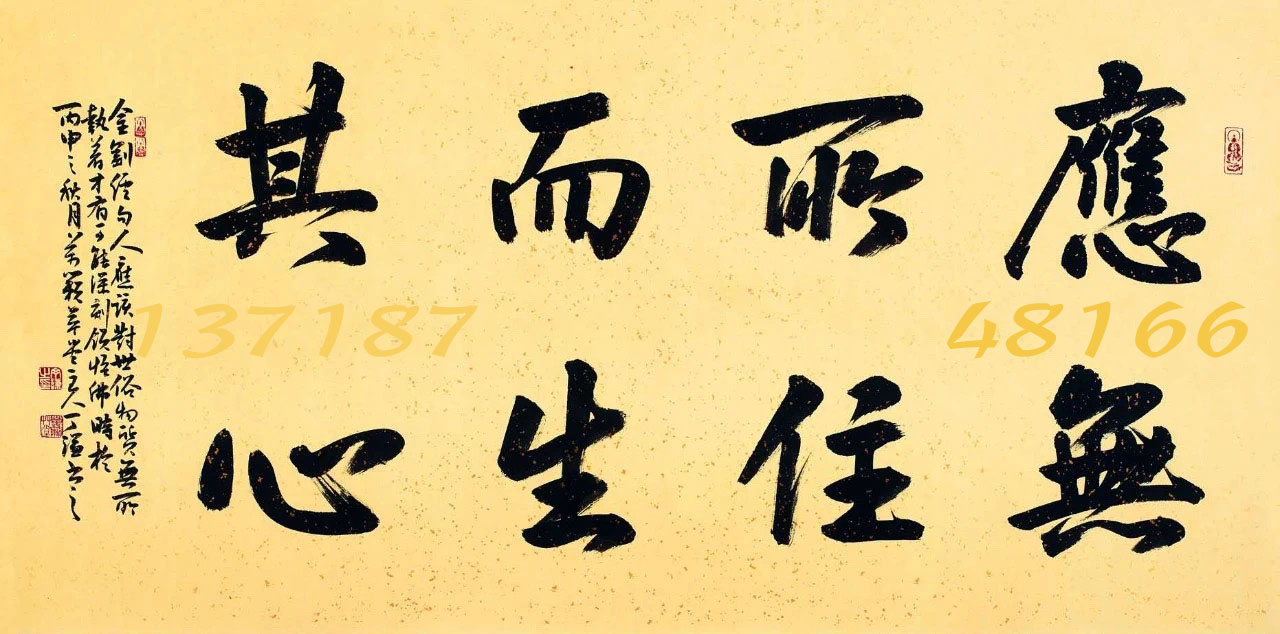 應無
所住
而生
其心
金剛經句人應該對世俗物質無所
執着才有可能深刻領悟佛時於
丙申之秋月草堂主人丁謙書之
137187
48166